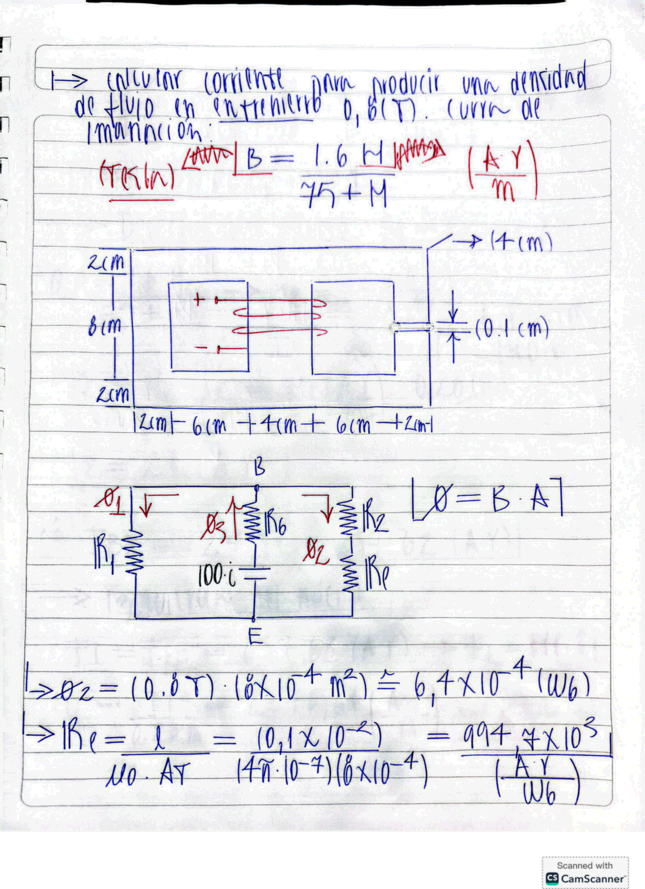 ↳ calcular corriente para producir una densidad
de flujo en entrehierro 0,8(T). Curva de
imanación:
(Tesla) B = 1.6 H / 75 + H (A·V / m)
→ (4 cm)
2cm
8cm
(0.1 cm)
2cm
+
-
|2cm|- 6cm + 4cm + 6cm + 2cm-|
B
Ø1
Ø3
R6
R2
[Ø = B · A]
R1
Ø2
100·i
Re
E
↳ Ø2 = (0.8T) · (8×10⁻⁴ m²) ≅ 6,4×10⁻⁴ (Wb)
↳ Re = l / μo · AT = (0,1 × 10⁻²) / (4π·10⁻⁷)(8×10⁻⁴) = 994,7×10³ (A·V / Wb)
Scanned with
CS CamScanner